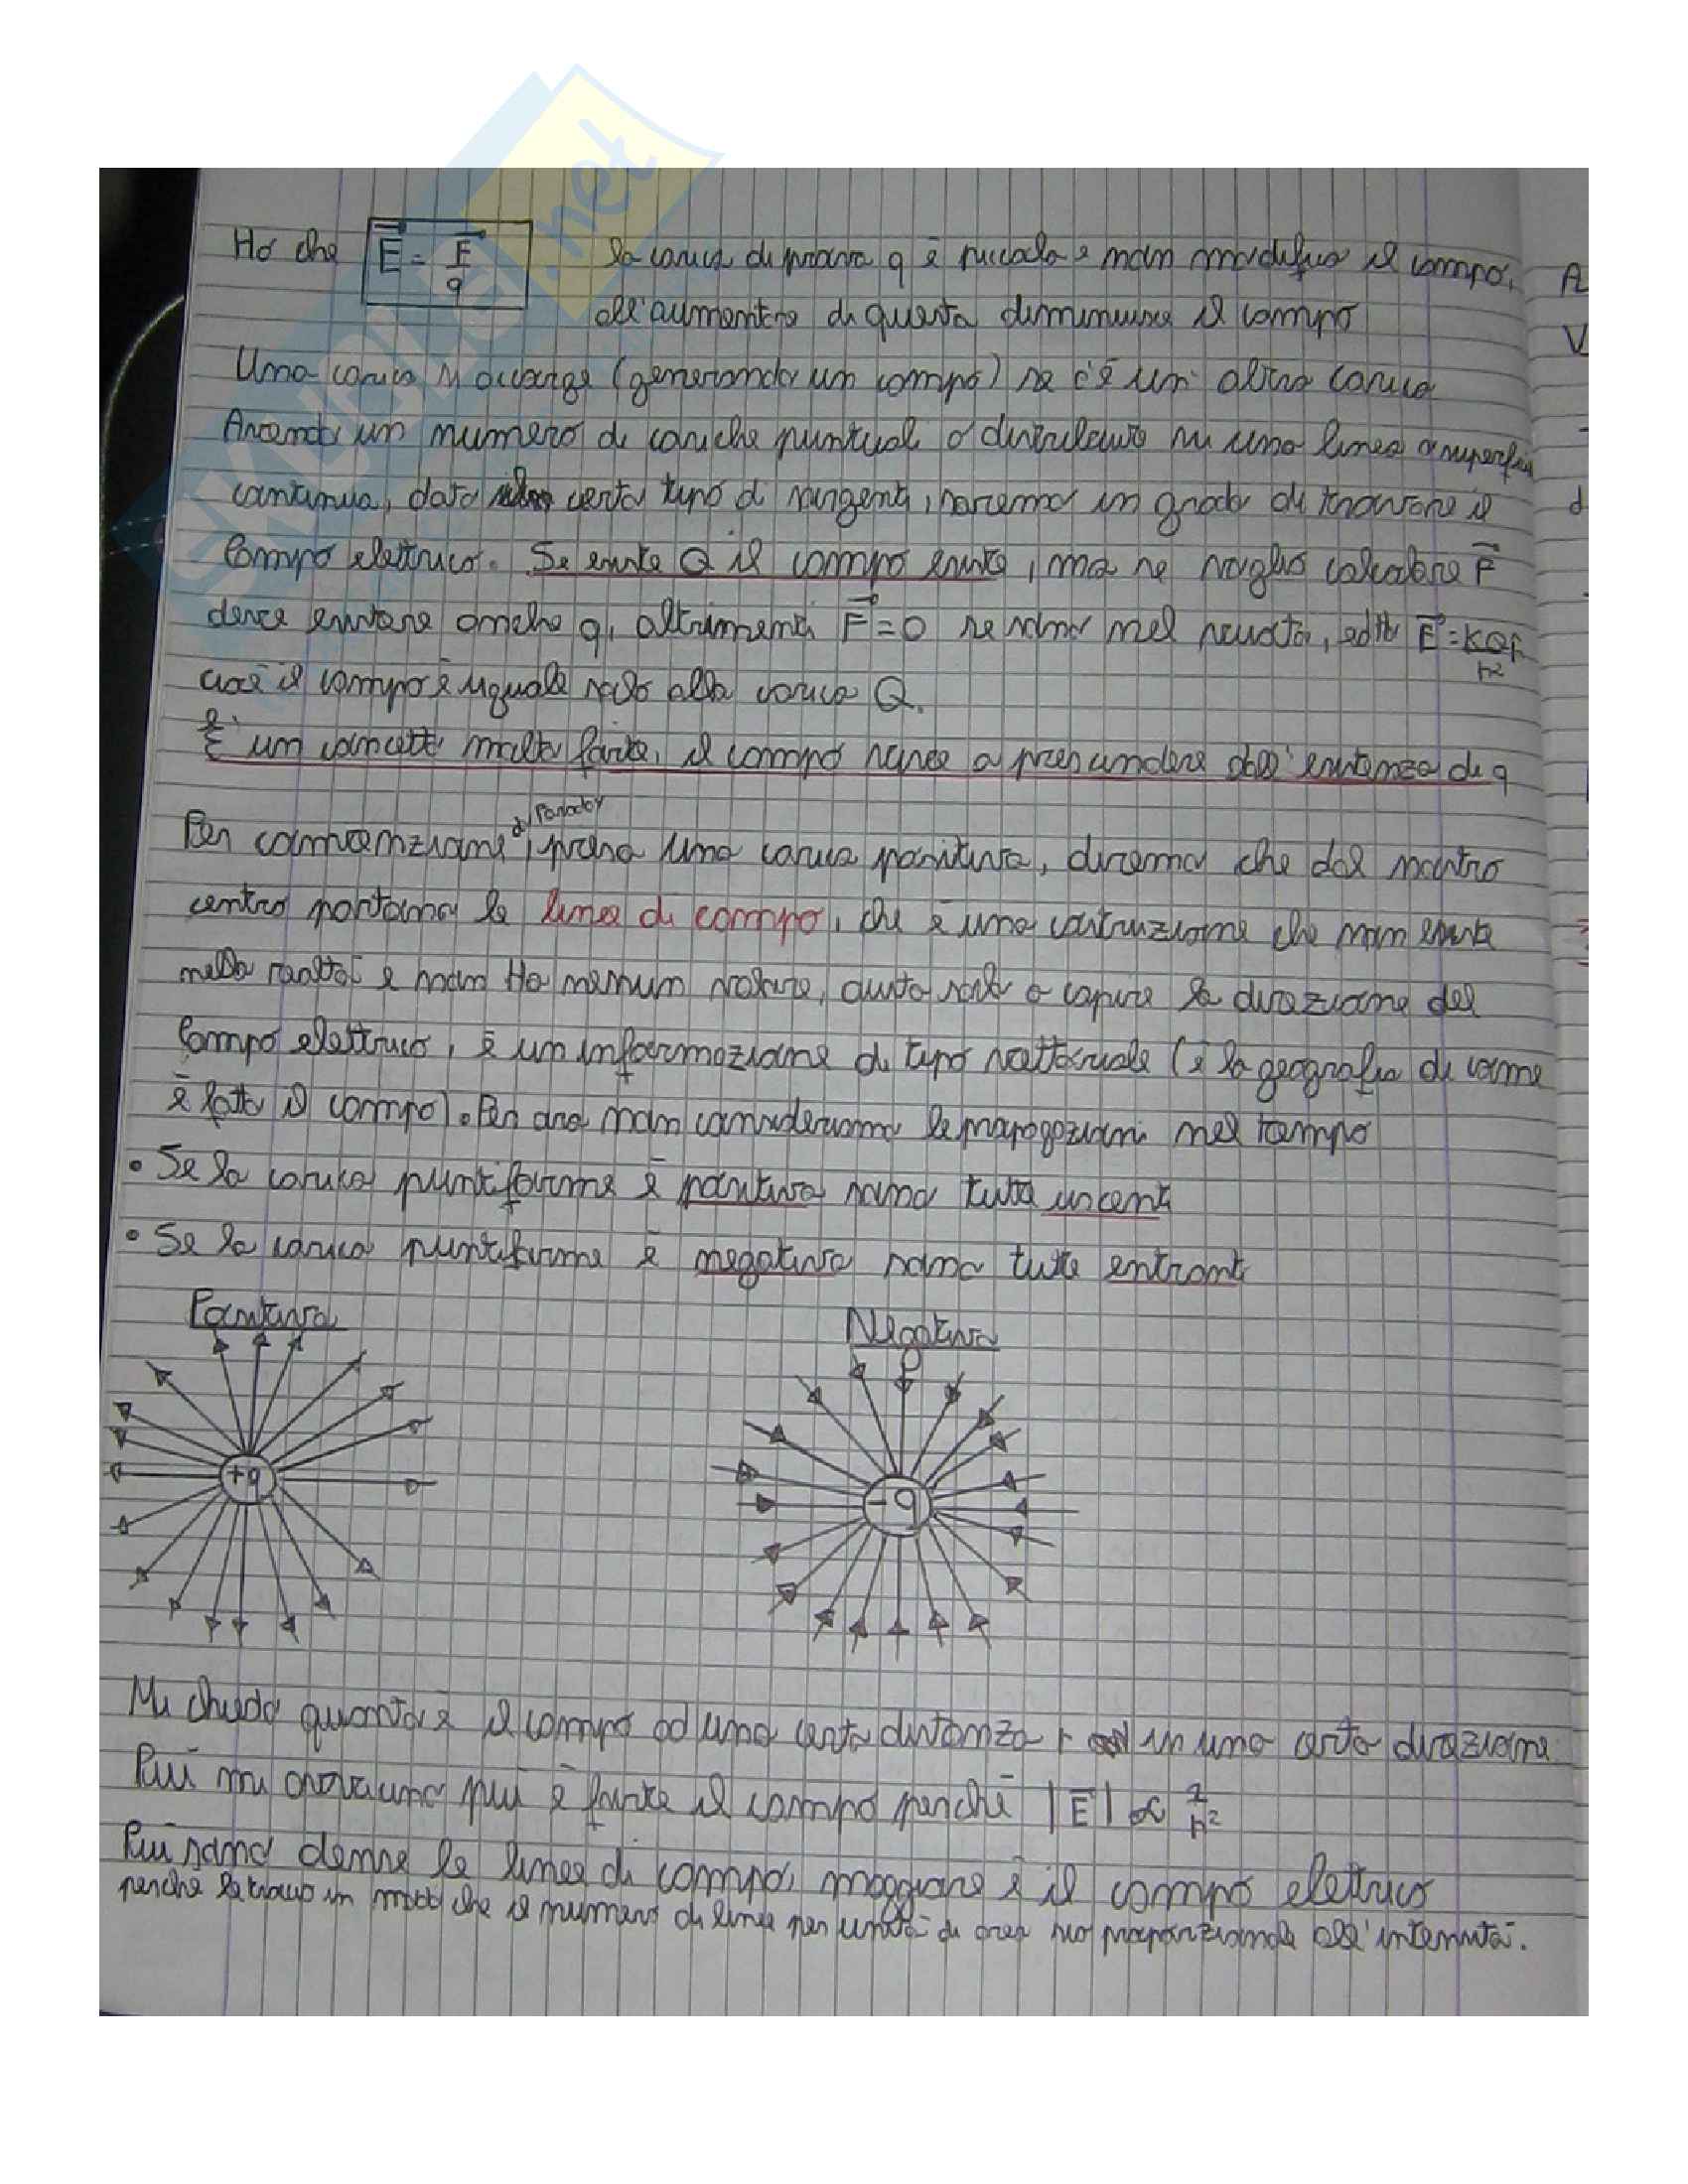 SKUOLA.net
Ho che E = F/q la carica di prova q è piccola e non modifica il campo,
all'aumentare di questa diminuisce il campo
Una carica si accorge (generando un campo) se c'è un altra carica
Avendo un numero di cariche puntuali o distribuite su una linea o superficie
continua, dato certo tipo di sorgenti, saremo in grado di trovare il
Campo elettrico. Se esiste Q il campo esiste, ma se voglio calcolare F
deve esistere anche q, altrimenti F = 0 se sono nel vuoto, E = KQ r/r²
cioè il campo è uguale solo alla carica Q.
È un concetto molto forte, il campo nasce a prescindere dall'esistenza di q
di Faraday
Per convenzione, presa una carica positiva, diremo che dal nostro
centro partono le linee di campo, che è una costruzione che non esiste
nella realtà e non Ha nessun valore, aiuta solo a capire la direzione del
Campo elettrico, è un informazione di tipo vettoriale (è la geografia di come
è fatto il campo). Per ora non consideriamo le propagazioni nel tempo
• Se la carica puntiforme è positiva sono tutte uscenti
• Se la carica puntiforme è negativa sono tutte entranti
Positiva
Negativa
+q
-q
Mi chiedo quanto è il campo ad una certa distanza r in una certa direzione
Più mi avvicino più è forte il campo perché |E| ∝ 1/r²
Più sono dense le linee di campo, maggiore è il campo elettrico
perché le traccio in modo che il numero di linee per unità di area sia proporzionale all'intensità.